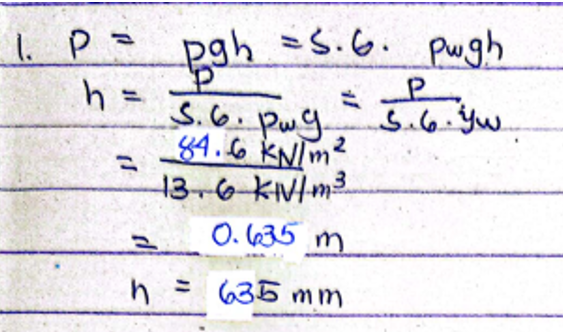 1. P = ρgh = S.G. ρwgh
h = P / S.G. ρwg = P / S.G. γw
= 84.6 kN/m² / 13.6 kN/m³
= 0.635 m
h = 635 mm